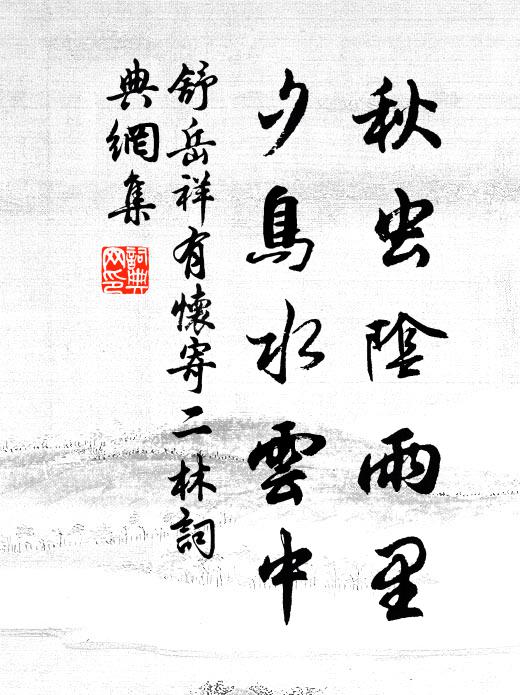 秋虫陰雨里
夕鳥水雲中
舒岳祥有懷寄二林詞
典網集
詞典網印